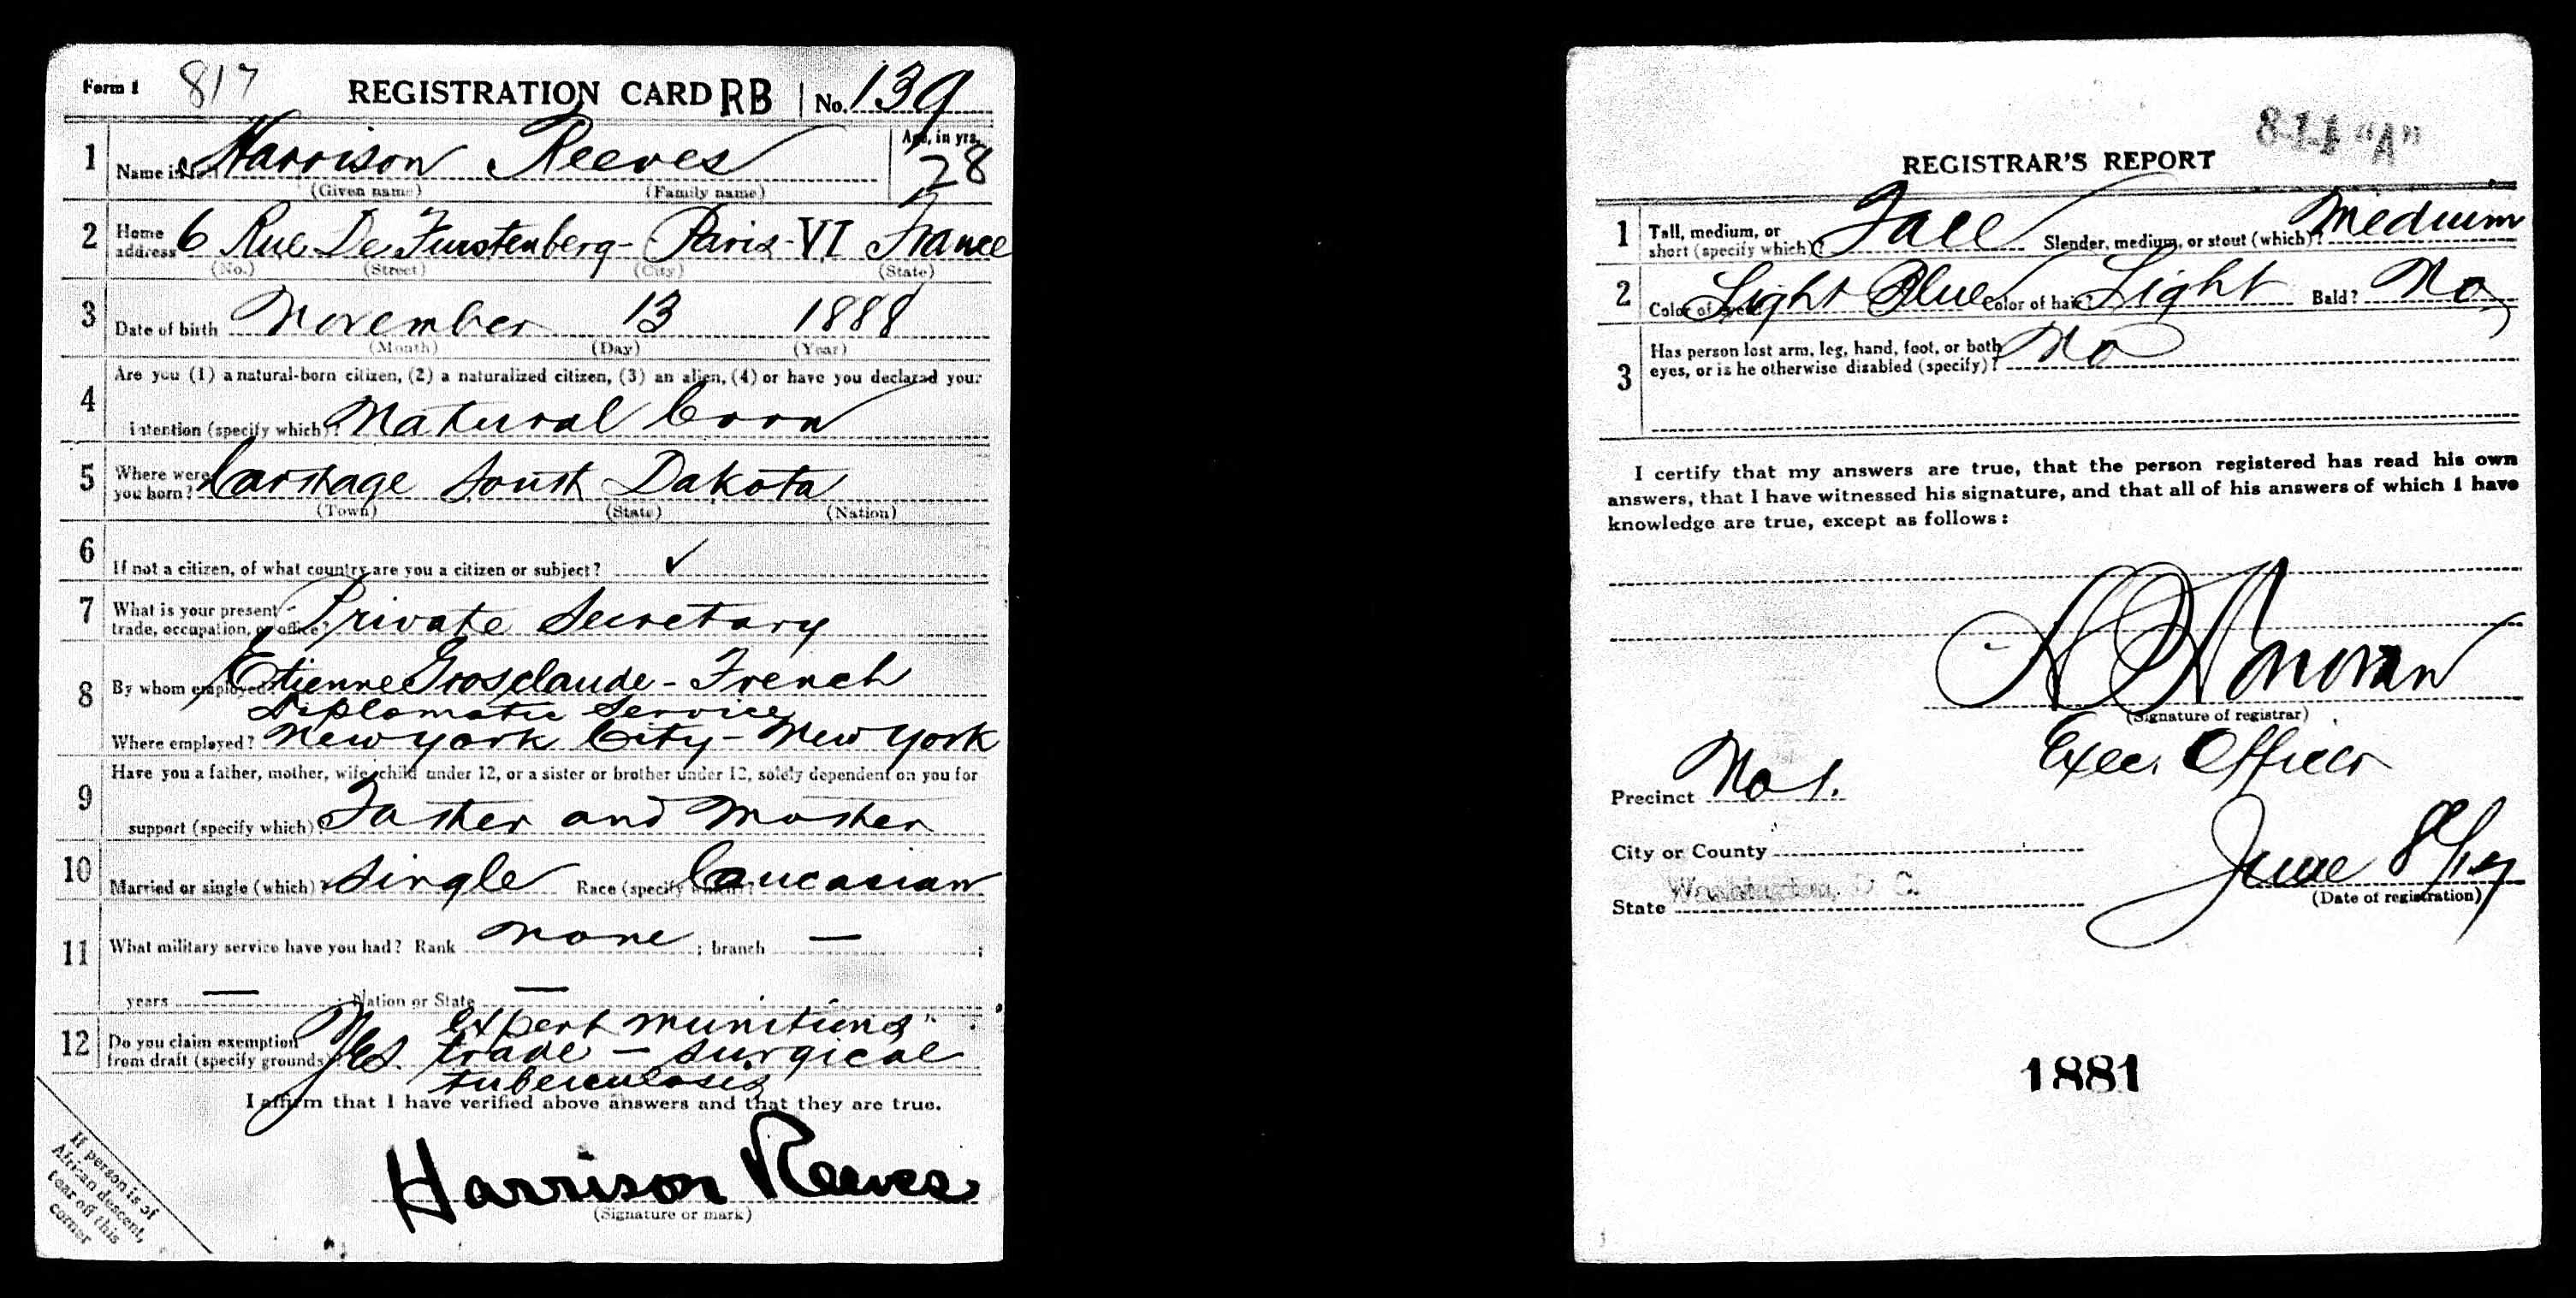 Form 1 817 REGISTRATION CARD RB No. 139
1 Name in full Harrison Reeves Age, in yrs. 28
(Given name) (Family name)
2 Home address 6 Rue De Furstenberg - Paris - VI France
(No.) (Street) (City) (State)
3 Date of birth November 13 1888
(Month) (Day) (Year)
4 Are you (1) a natural-born citizen, (2) a naturalized citizen, (3) an alien, (4) or have you declared your
intention (specify which)? Natural born
5 Where were you born? Carthage South Dakota
(Town) (State) (Nation)
6 If not a citizen, of what country are you a citizen or subject? ✓
7 What is your present trade, occupation, or office? Private Secretary
8 By whom employed? Etienne Grosclaude - French
Diplomatic Service
Where employed? New York City - New York
9 Have you a father, mother, wife, child under 12, or a sister or brother under 12, solely dependent on you for
support (specify which)? Father and Mother
10 Married or single (which)? Single Race (specify which)? Caucasian
11 What military service have you had? Rank none ; branch — ;
years — ; Nation or State —
12 Do you claim exemption from draft (specify grounds)? Yes. expert munitions
trade - surgical
tuberculosis
I affirm that I have verified above answers and that they are true.
Harrison Reeves
(Signature or mark)
If person is of
African descent,
tear off this
corner
"A"
REGISTRAR'S REPORT
1 Tall, medium, or short (specify which)? Tall Slender, medium, or stout (which)? Medium
2 Color of eyes? Light Blue Color of hair? Light Bald? No
3 Has person lost arm, leg, hand, foot, or both
eyes, or is he otherwise disabled (specify)? No
I certify that my answers are true, that the person registered has read his own
answers, that I have witnessed his signature, and that all of his answers of which I have
knowledge are true, except as follows:
(Signature of registrar)
Exec. Officer
Precinct No 1.
City or County
State Washington, D. C.
June 8/17
(Date of registration)
1881